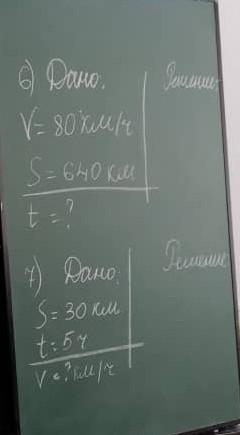 6) Дано:
Решение:
V = 80 км/ч
S = 640 км
t = ?
7) Дано:
Решение
S = 30 км
t = 5 ч
V = ? км/ч